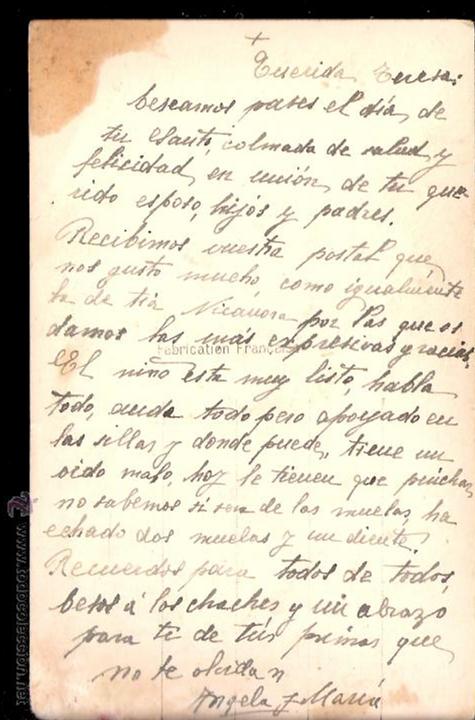 +
Querida Teresa:
Deseamos pases el día de
tu Santo, colmada de salud y
felicidad, en unión de tu que
rido esposo, hijos y padres.
Recibimos vuestra postal que
nos gusto mucho, como igualmente
la de tia Nicanora por las que os
damos las más expresivas gracias,
Fabrication Française
El niño esta muy listo, habla
todo, anda todo pero apoyado en
las sillas y donde puede, tiene un
oido malo, hoy le tienen que pinchar,
no sabemos si sera de las muelas, ha
echado dos muelas y un diente.
Recuerdos para todos de todos,
besos á los chaches y un abrazo
para ti de tus primas que
no te olvidan
Angela y María
www.todocoleccion.net